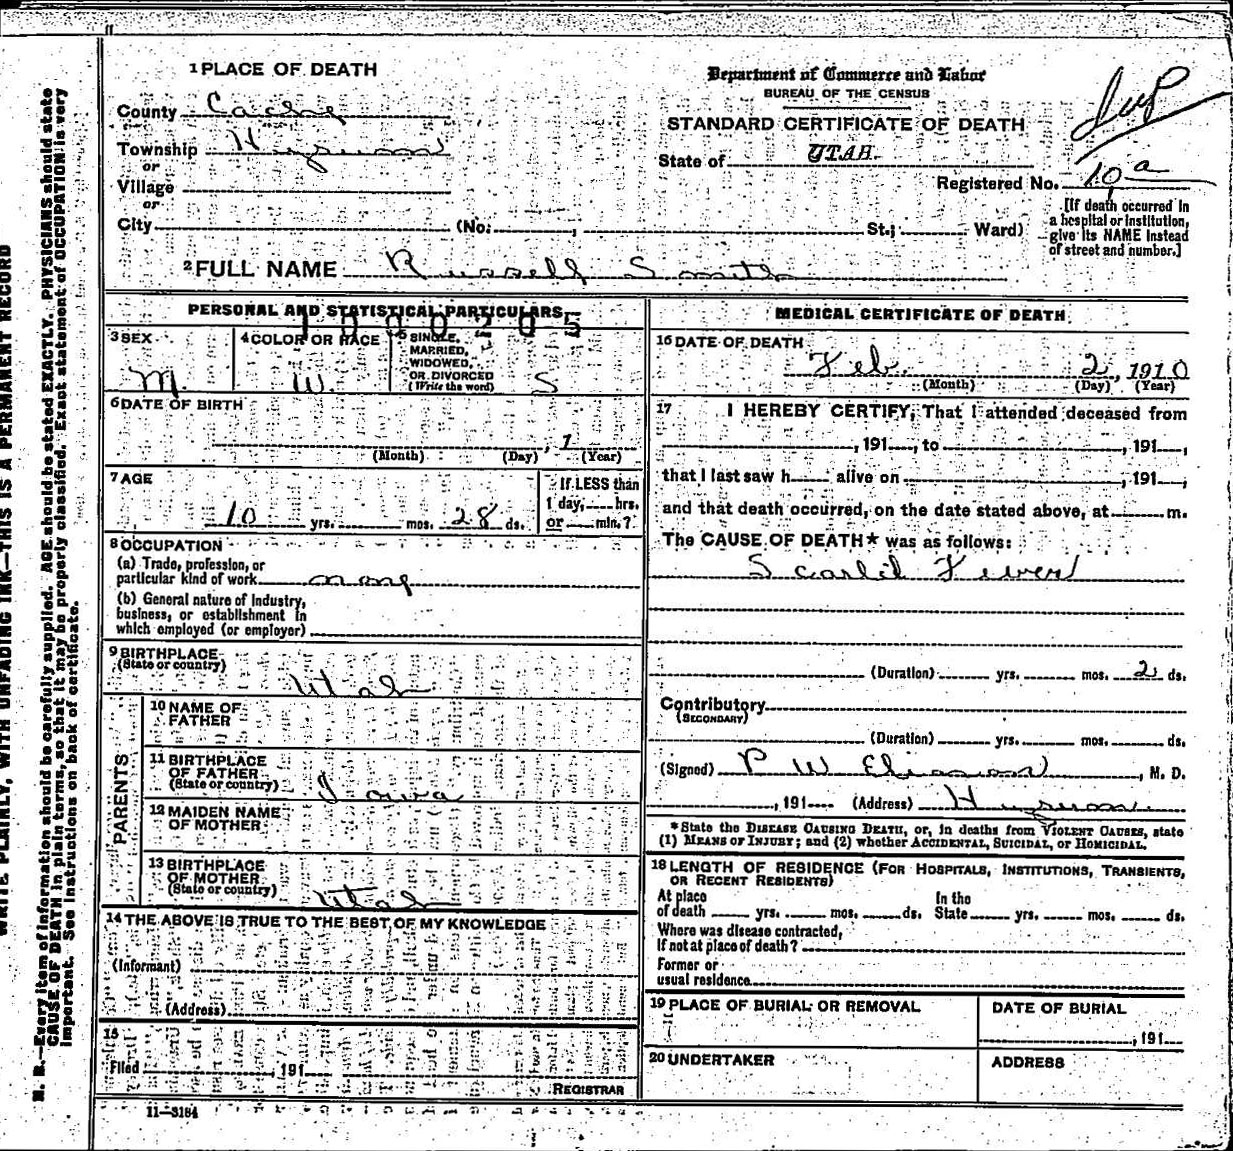 WRITE PLAINLY, WITH UNFADING INK—THIS IS A PERMANENT RECORD
N. B.—Every item of information should be carefully supplied. AGE should be stated EXACTLY. PHYSICIANS should state
CAUSE OF DEATH in plain terms, so that it may be properly classified. Exact statement of OCCUPATION is very
important. See instructions on back of certificate.
1 PLACE OF DEATH
County Cache
Township Hyrum
or
Village
or
City (No. , St.; Ward)
Department of Commerce and Labor
BUREAU OF THE CENSUS
STANDARD CERTIFICATE OF DEATH
State of UTAH.
Dup
Registered No. 10 a
[If death occurred in
a hospital or institution,
give its NAME instead
of street and number.]
2 FULL NAME Russell Smith
PERSONAL AND STATISTICAL PARTICULARS
1000205
3 SEX
M.
4 COLOR OR RACE
W.
5 SINGLE,
MARRIED,
WIDOWED,
OR DIVORCED
(Write the word)
S
6 DATE OF BIRTH
, 1
(Month) (Day) (Year)
7 AGE
10 yrs. mos. 28 ds.
If LESS than
1 day, hrs.
or min.?
8 OCCUPATION
(a) Trade, profession, or
particular kind of work none
(b) General nature of industry,
business, or establishment in
which employed (or employer)
9 BIRTHPLACE
(State or country)
Utah
PARENTS
10 NAME OF
FATHER
11 BIRTHPLACE
OF FATHER
(State or country) Iowa
12 MAIDEN NAME
OF MOTHER
13 BIRTHPLACE
OF MOTHER
(State or country) Utah
14 THE ABOVE IS TRUE TO THE BEST OF MY KNOWLEDGE
(Informant)
(Address)
15
Filed , 191
REGISTRAR
11—3184
MEDICAL CERTIFICATE OF DEATH
16 DATE OF DEATH
Feb. 2, 1910
(Month) (Day) (Year)
17 I HEREBY CERTIFY, That I attended deceased from
, 191 , to , 191 ,
that I last saw h alive on , 191 ,
and that death occurred, on the date stated above, at m.
The CAUSE OF DEATH* was as follows:
Scarlet Fever
(Duration) yrs. mos. 2 ds.
Contributory
(SECONDARY)
(Duration) yrs. mos. ds.
(Signed) P W Eliason , M. D.
, 191 (Address) Hyrum
*State the DISEASE CAUSING DEATH, or, in deaths from VIOLENT CAUSES, state
(1) MEANS OF INJURY; and (2) whether ACCIDENTAL, SUICIDAL, or HOMICIDAL.
18 LENGTH OF RESIDENCE (FOR HOSPITALS, INSTITUTIONS, TRANSIENTS,
OR RECENT RESIDENTS)
At place In the
of death yrs. mos. ds. State yrs. mos. ds.
Where was disease contracted,
If not at place of death?
Former or
usual residence
19 PLACE OF BURIAL OR REMOVAL
DATE OF BURIAL
, 191
20 UNDERTAKER
ADDRESS